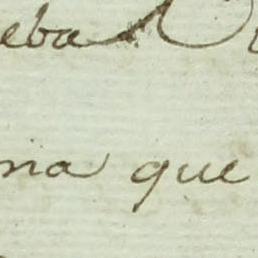 eba
na que